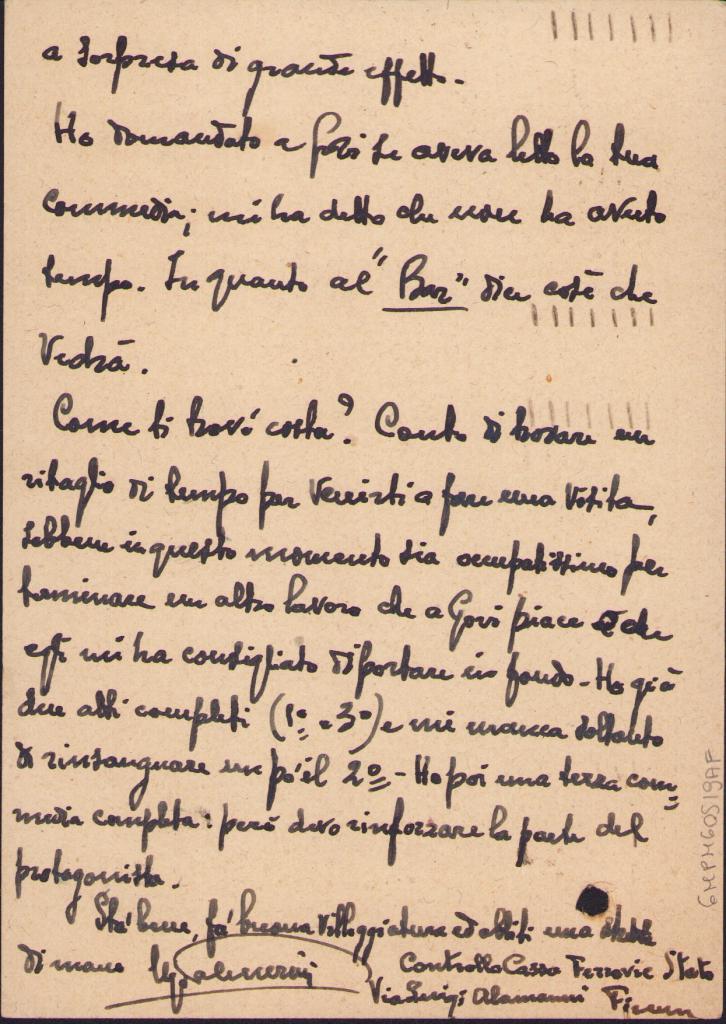 a sorpresa di grande effetto.
Ho domandato a Govi se aveva letto la tua
commedia; mi ha detto che non ha avuto
tempo. In quanto al "Bar" dice così che
Vedrà.
Come ti trovi costà? Conto di trovare un
ritaglio di tempo per venirti a fare una visita,
sebbene in questo momento sia occupatissimo per
terminare un altro lavoro che a Govi piace e che
egli mi ha consigliato di portare in fondo. Ho già
due atti completi (1º e 3º) e mi manca soltanto
di rinsanguare un po' il 2º - Ho poi una terza com=
media completa: però devo rinforzare la parte del
protagonista.
Stà bene, fà buona villeggiatura ed abbiti una stretta
di mano
Controllo Cassa Ferrovie Stato
Via Luigi Alamanni Firenze